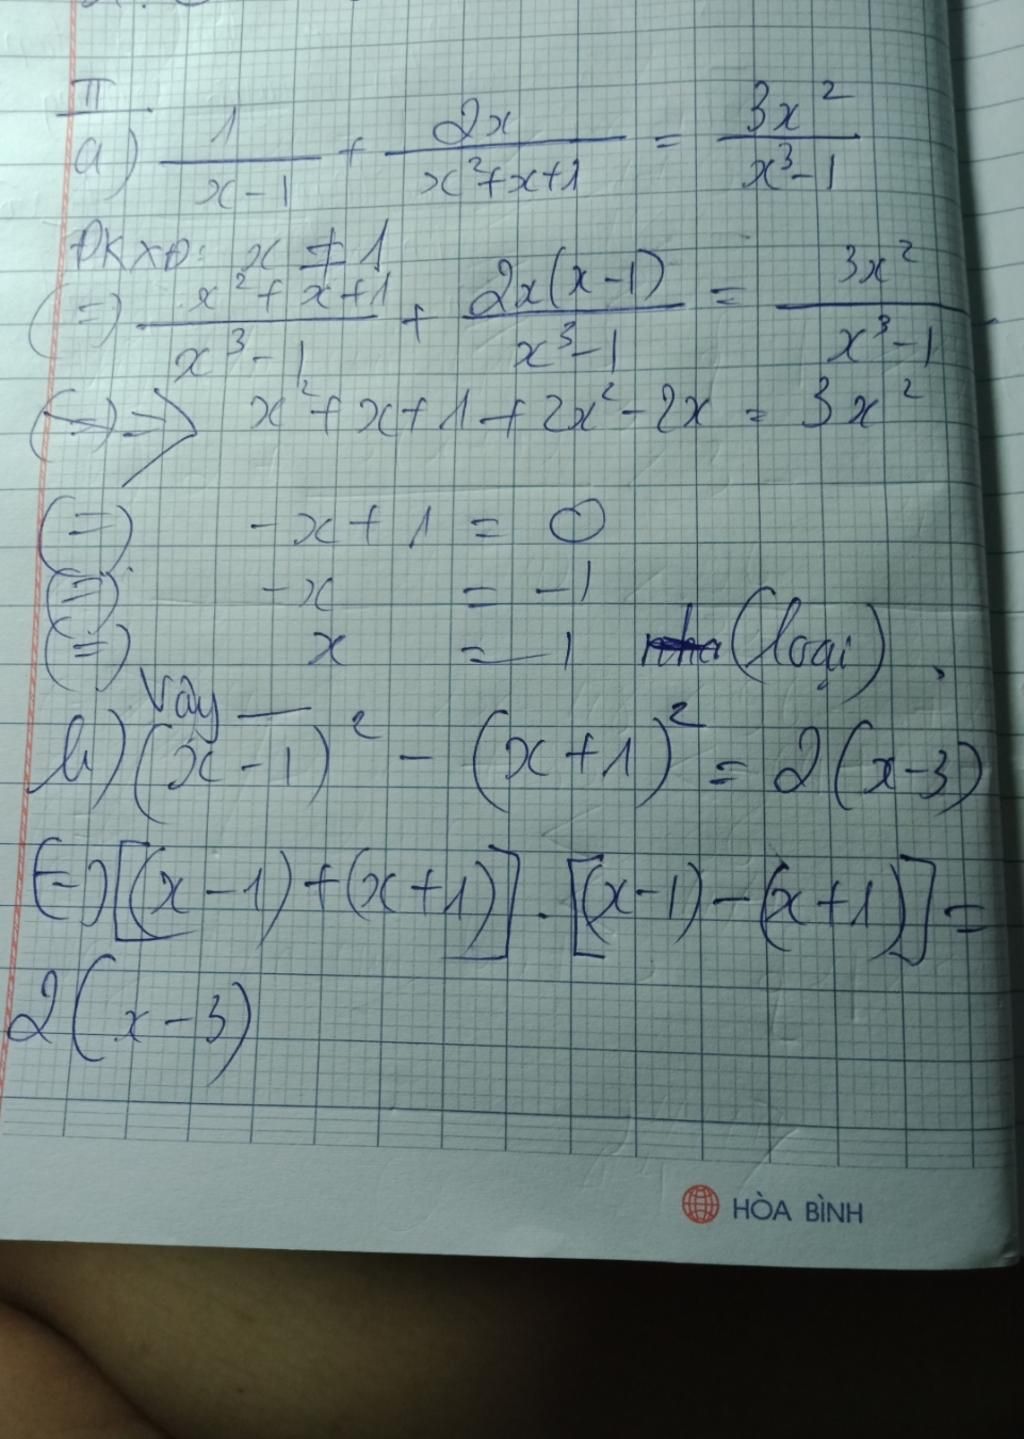 II
a) 1/(x-1) + 2x/(x²+x+1) = 3x²/(x³-1)
ĐKXĐ: x ≠ 1
(=) (x²+x+1)/(x³-1) + 2x(x-1)/(x³-1) = 3x²/(x³-1)
=> x²+x+1+2x²-2x = 3x²
(=) -x+1 = 0
(=) -x = -1
(=) x = 1 (loại).
Vậy —
b) (x-1)² - (x+1)² = 2(x-3)
(=) [(x-1)+(x+1)].[(x-1)-(x+1)] =
2(x-3)
HÒA BÌNH